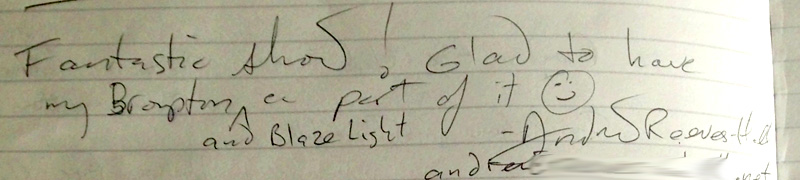 Fantastic show! Glad to have
my Brompton a part of it
and Blaze Light
- Andrew Reeves-Hall